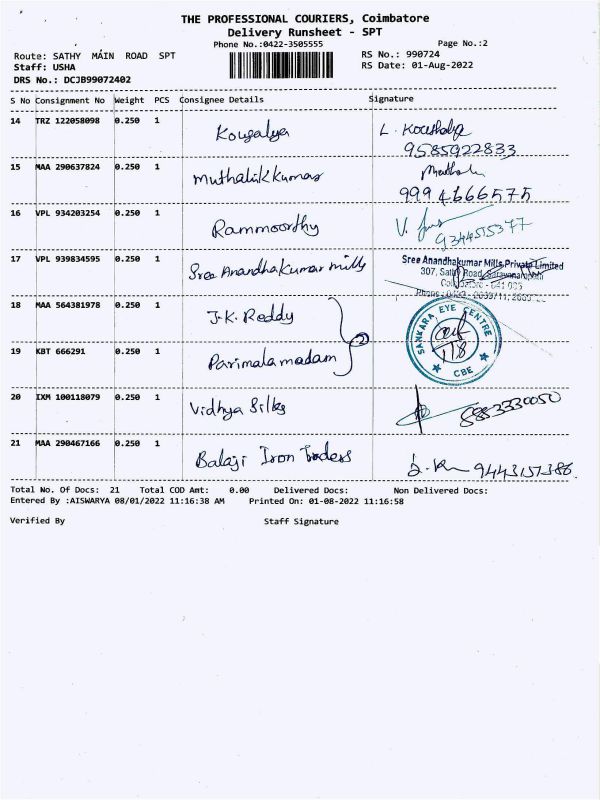 THE PROFESSIONAL COURIERS, Coimbatore
Delivery Runsheet - SPT
Phone No.:0422-3505555 Page No.:2
Route: SATHY MAIN ROAD SPT RS No.: 990724
Staff: USHA RS Date: 01-Aug-2022
DRS No.: DCJB99072402
S No Consignment No Weight PCS Consignee Details Signature
14 TRZ 122058098 0.250 1 Kousalya L. Kousalya
9585922833
15 MAA 290637824 0.250 1 Muthalik Kumar
9994666575
16 VPL 934203254 0.250 1 Rammoorthy V.
9344515377
17 VPL 939834595 0.250 1 Sree Anandhakumar mills Sree Anandhakumar Mills Private Limited
307, Sathy Road, Saravanampatti
Coimbatore - 641 035
Phone : 0422 -
18 MAA 564381978 0.250 1 J.K. Reddy SANKARA EYE CENTRE
2
19 KBT 666291 0.250 1 Parimala madam 1/8
CBE
20 IXM 100118079 0.250 1 Vidhya Silks 8883330050
21 MAA 290467166 0.250 1 Balaji Iron Traders 9443157386
Total No. Of Docs: 21 Total COD Amt: 0.00 Delivered Docs: Non Delivered Docs:
Entered By :AISWARYA 08/01/2022 11:16:38 AM Printed On: 01-08-2022 11:16:58
Verified By Staff Signature